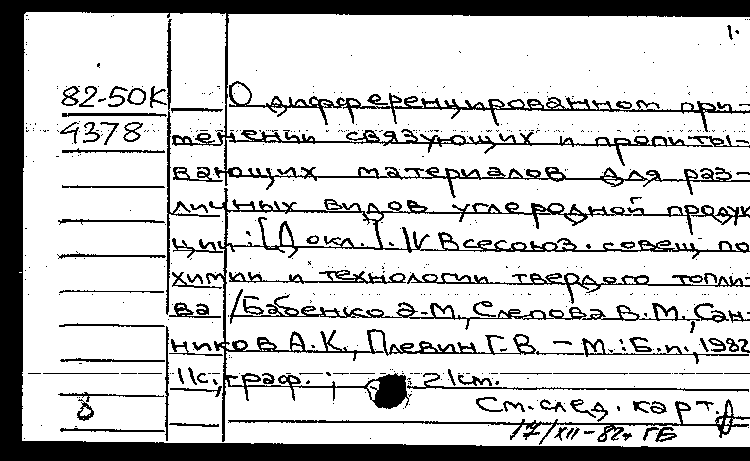 1.
82-50К О дифференцированном при-
4378 менении связующих и пропиты-
вающих материалов для раз-
личных видов углеродной продук
ции: [Докл.]. IV Всесоюз. совещ по
химии и технологии твердого топли-
ва /Бабенко Э.М., Слепова В.М., Сан-
ников А.К., Плевин Г.В. – М.: Б.и., 1982
11с., граф. ; 21см.
8 См. след. карт.
17/XII-82г ГБ